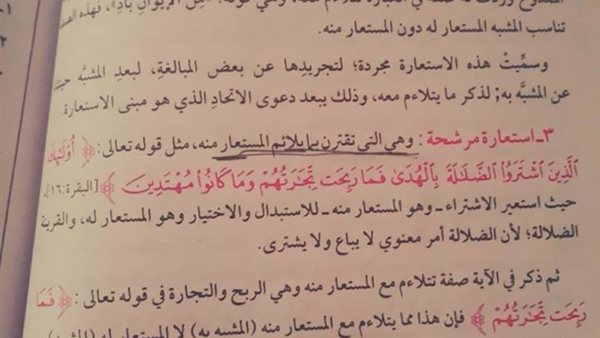 تناسب المشبه المستعار له دون المستعار منه.
وسميتْ هذه الاستعارة مجردة؛ لتجريدِها عن بعض المبالغةِ، لبعدِ المشبَّه حينئذ
عن المشبَّه به؛ لذكر ما يتلاءم معه، وذلك يبعد دعوى الاتحادِ الذي هو مبنى الاستعارة.
٣ـ استعارة مرشحة: وهي التي تقترن بما يلائم المستعار منه، مثل قوله تعالى: ﴿ أُوْلَٰٓئِكَ
ٱلَّذِينَ ٱشْتَرَوُا۟ ٱلضَّلَٰلَةَ بِٱلْهُدَىٰ فَمَا رَبِحَت تِّجَٰرَتُهُمْ وَمَا كَانُوا۟ مُهْتَدِينَ ﴾ [البقرة: ١٦]،
حيث استعير الاشتراء ـ وهو المستعار منه ـ للاستبدال والاختيار وهو المستعار له، والقرينة
الضلالة؛ لأن الضلالة أمر معنوي لا يباع ولا يشترى.
ثم ذكر في الآية صفة تتلاءم مع المستعار منه وهي الربح والتجارة في قوله تعالى: ﴿ فَمَا
رَبِحَت تِّجَٰرَتُهُمْ ﴾ فإن هذا مما يتلاءم مع المستعار منه (المشبه به) لا المستعار له